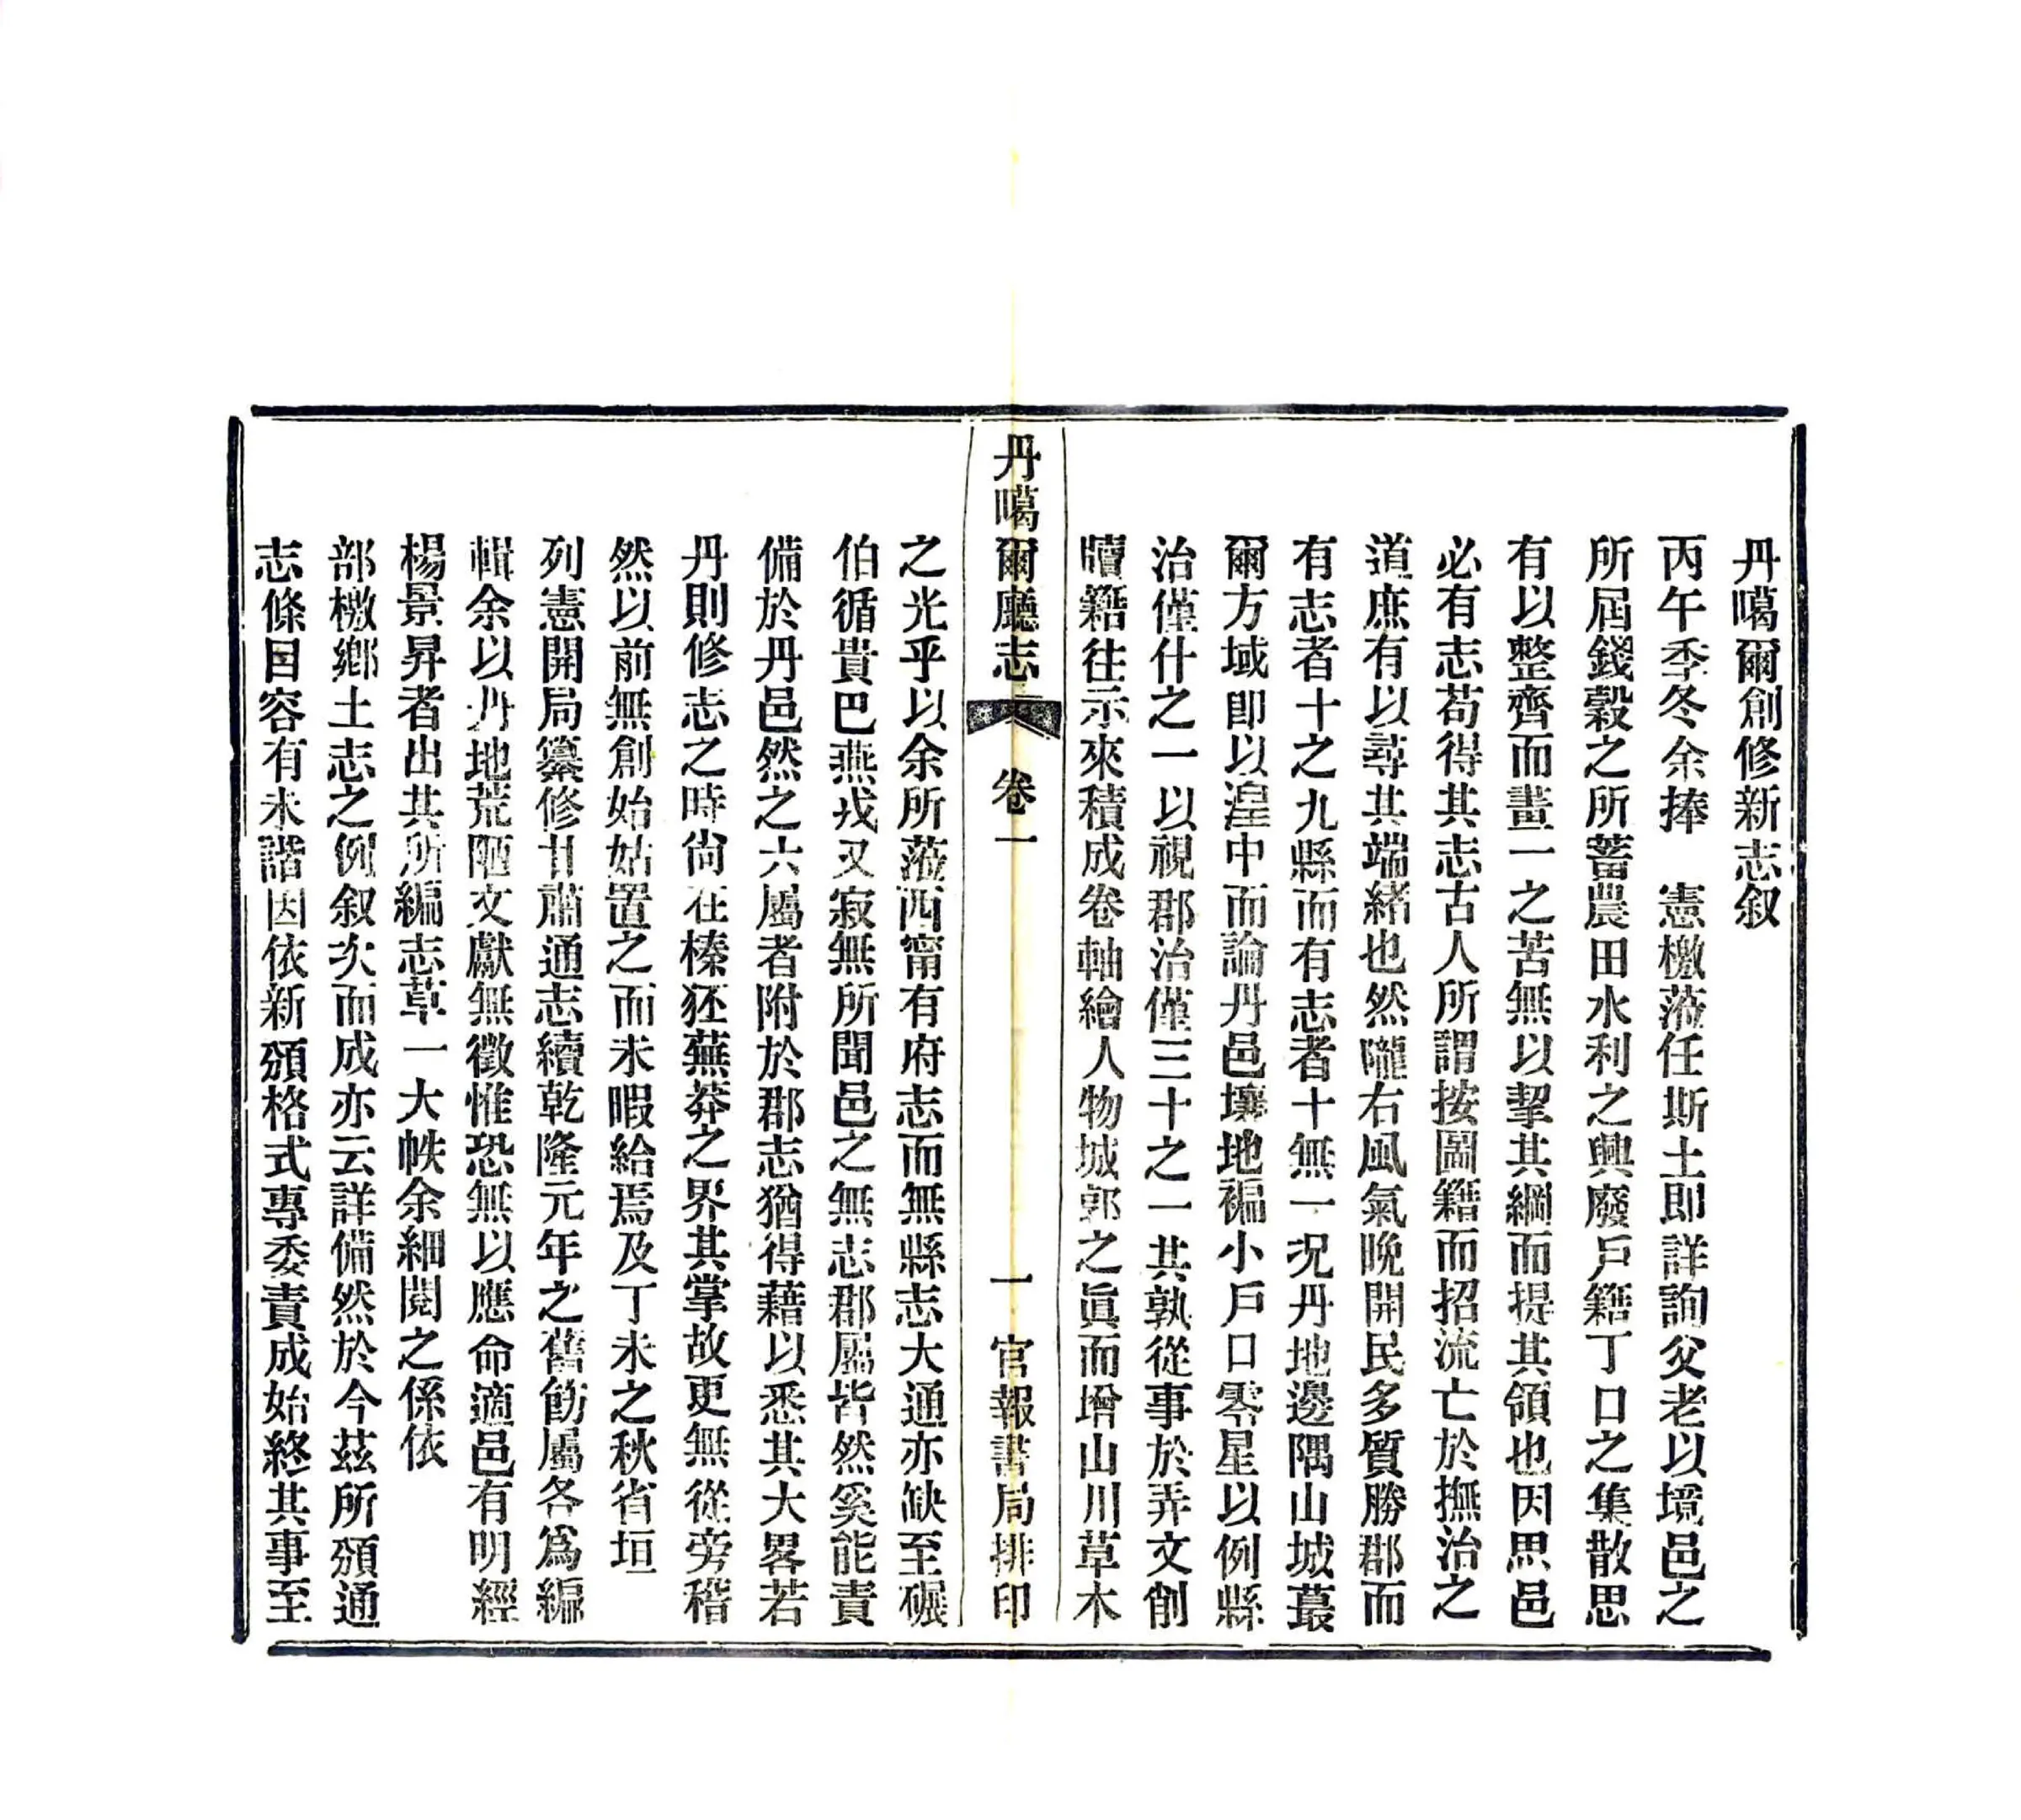 丹噶爾創修新志叙
丙午季冬余捧　憲檄蒞任斯土即詳詢父老以境邑之
所屆錢穀之所蓄農田水利之興廢戶籍丁口之集散思
有以整齊而畫一之苦無以挈其綱而提其領也因思邑
必有志苟得其志古人所謂按圖籍而招流亡於撫治之
道庶有以尋其端緒也然隴右風氣晚開民多質勝郡而
有志者十之九縣而有志者十無一况丹地邊隅山城蕞
爾方域即以湟中而論丹邑壤地褊小戶口零星以例縣
治僅什之一以視郡治僅三十之一其孰從事於弄文削
牘籍往示來積成卷軸繪人物城郭之眞而增山川草木
丹噶爾廳志　卷一　一　官報書局排印
之光乎以余所蒞西甯有府志而無縣志大通亦缺至碾
伯循貴巴燕戎又寂無所聞邑之無志郡屬皆然奚能責
備於丹邑然之六屬者附於郡志猶得藉以悉其大畧若
丹則修志之時尙在榛狉蕪莽之界其掌故更無從旁稽
然以前無創始姑置之而未暇給焉及丁未之秋省垣
列憲開局纂修甘肅通志續乾隆元年之舊飭屬各爲編
輯余以丹地荒陋文獻無徵惟恐無以應命適邑有明經
楊景昇者出其所編志草一大帙余細閱之係依
部檄鄉土志之例叙次而成亦云詳備然於今茲所頒通
志條目容有未諧因依新頒格式專委責成始終其事至